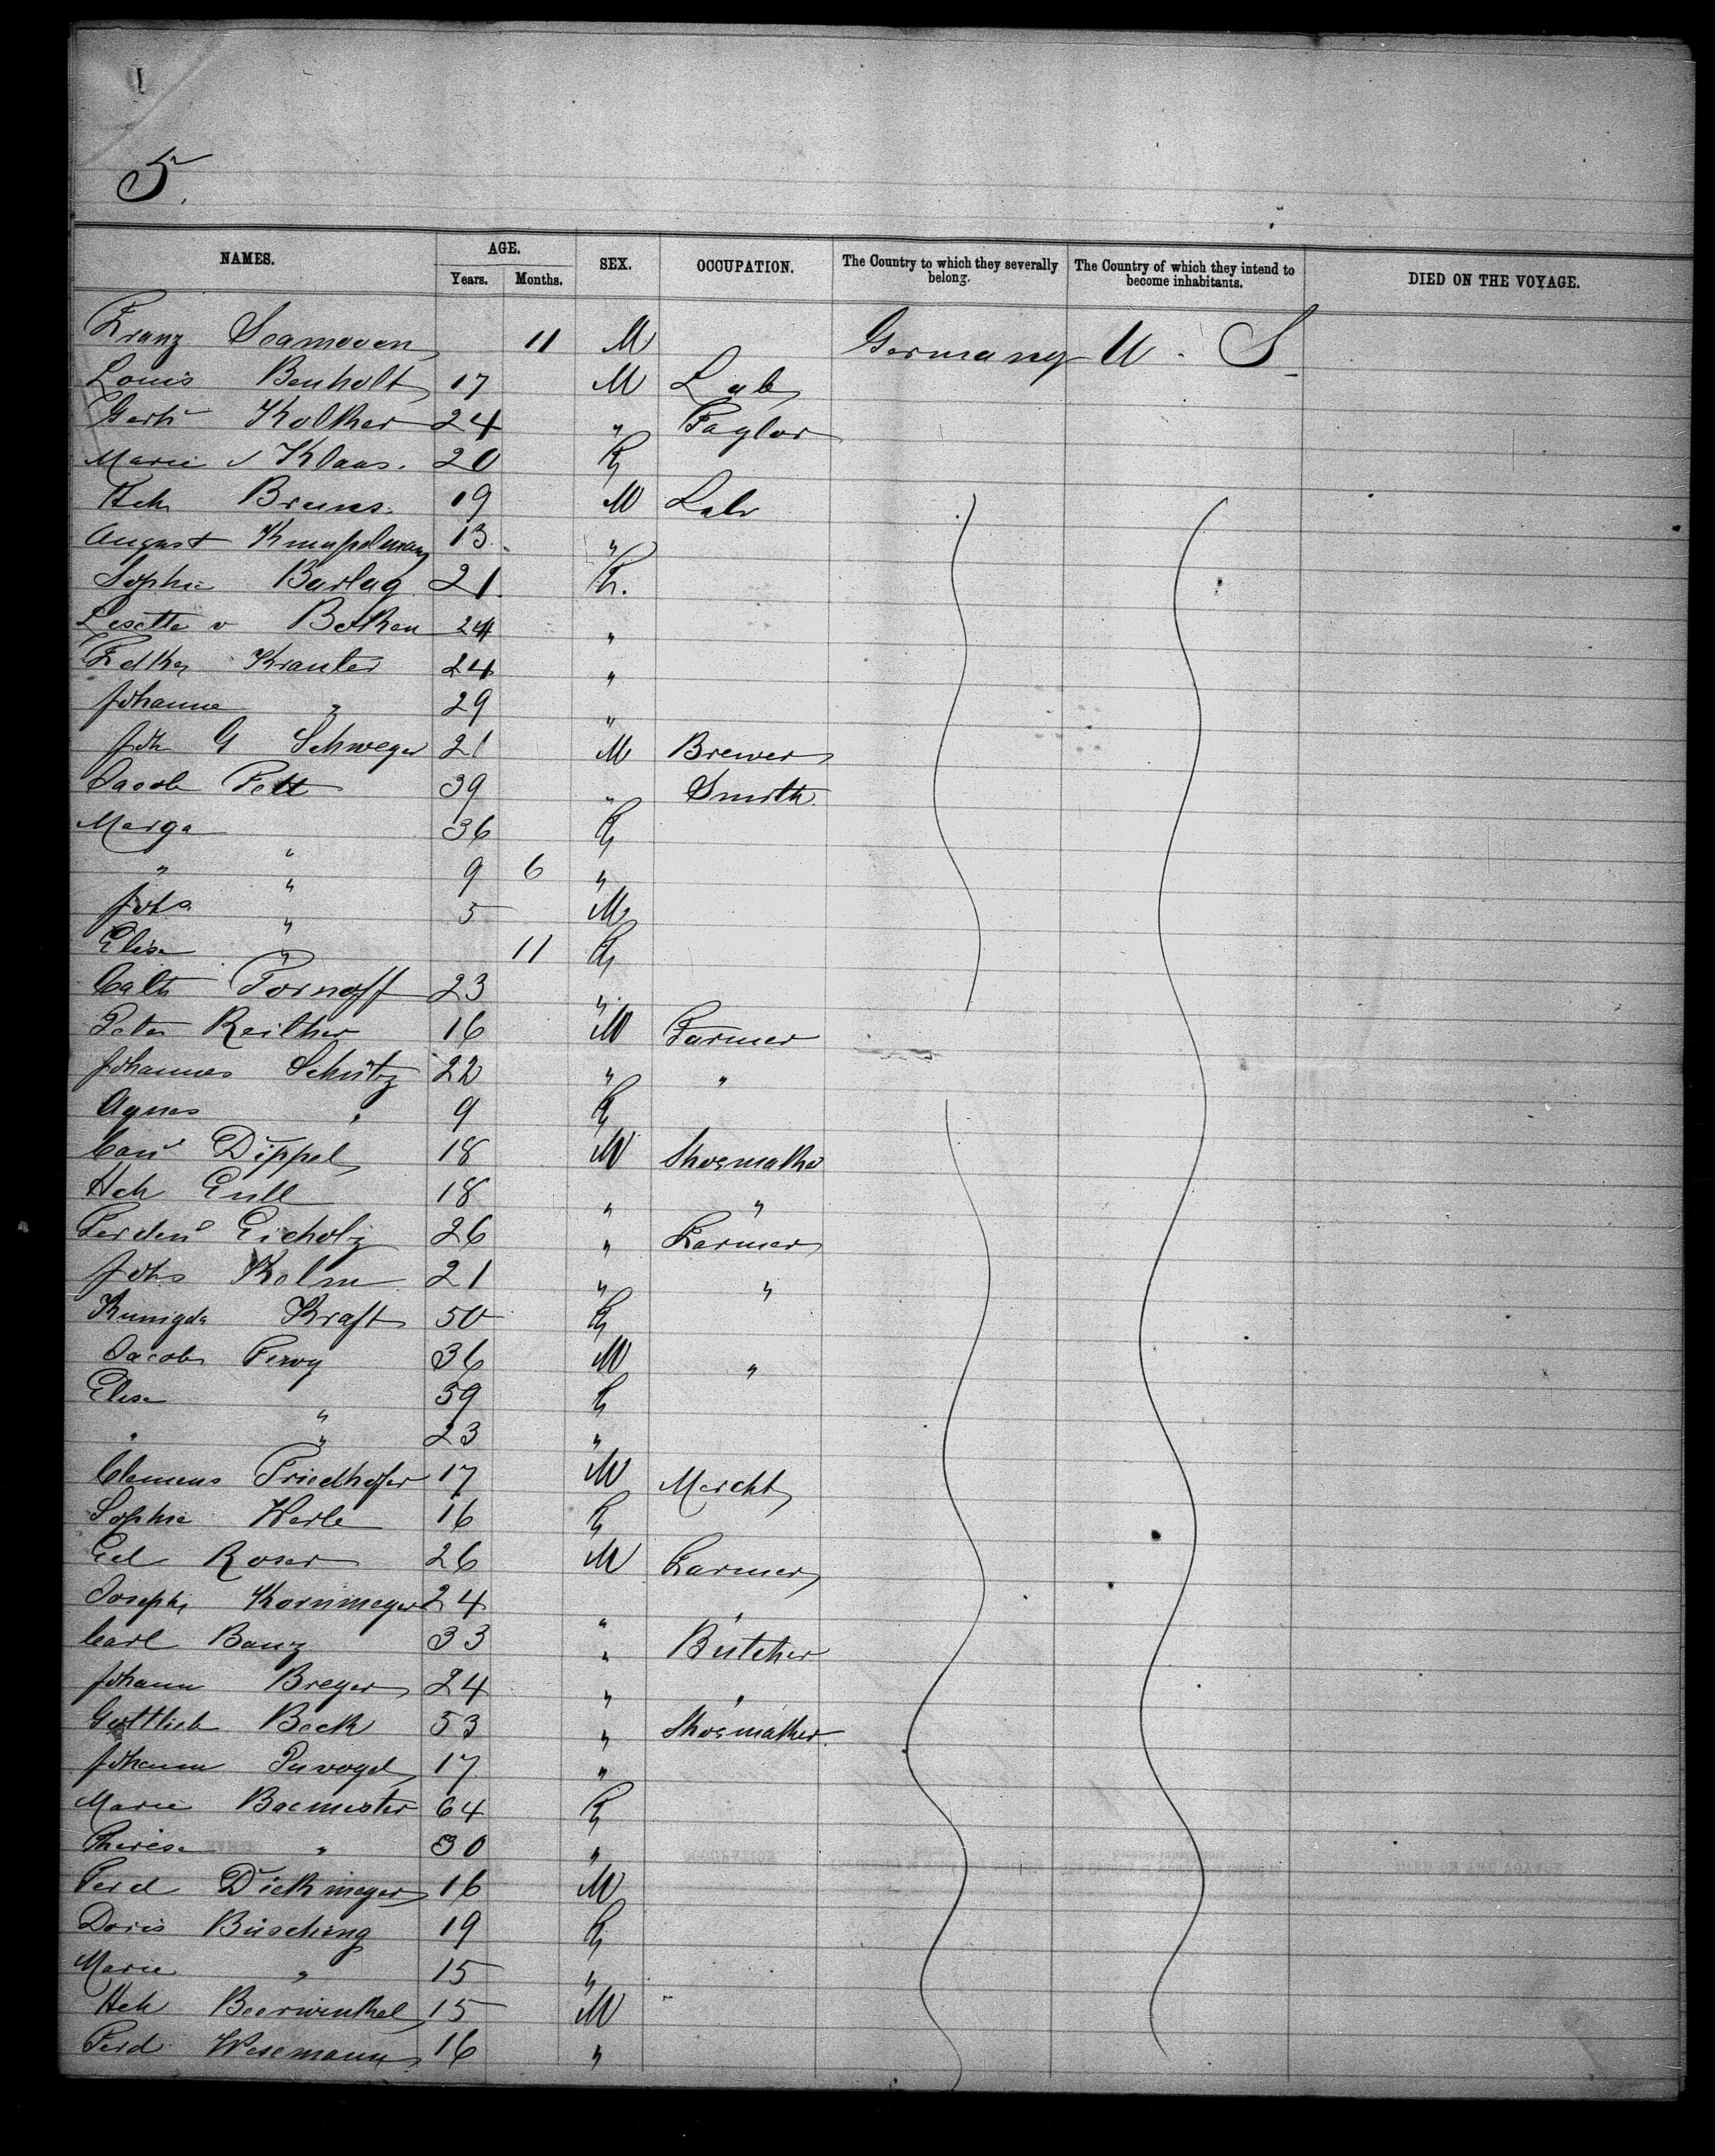 5.
NAMES. AGE. SEX. OCCUPATION. The Country to which they severally belong. The Country of which they intend to become inhabitants. DIED ON THE VOYAGE.
Years. Months.
Franz 11 M Germany U. S.
Louis Benholt 17 M Lab
Gerh Kolker 24 " Taylor
Marie v Klaas. 20 F
Hch Bruns. 19 M Labr
August 13 "
Sophie Barlag 21. F.
Lisette v Betken 24 "
Kranter 24 "
Johanne " 29 "
Joh G Schweger 21 M Brewer
Jacob Pett 39 " Smith
Marga " 36 F
" " 9 6 "
Johs " 5 M
Elise " 11 F
Cath Tornoff 23 "
Peter Reither 16 M Farmer
Johannes Schütz 22 " "
Agnes " 9 F
Dippel 18 M Shoemaker
Hch Gull 18 " "
Ferdin Eicholz 26 " Farmer
Johs Kolm 21 " "
Kunigda Kraft 50 F
Jacob 36 M "
Elise " 59 F
" " 23 "
Clemens Friedhofer 17 M Mercht
Sophie Kerle 16 F
Ed Roser 26 M Farmer
Joseph Kornmeyer 24 " "
Carl Banz 33 " Butcher
Johann Breyer 24 " "
Gottlieb Beck 53 " Shoemaker.
Johann Puvogel 17 "
Marie Bacmeister 64 F
Therese " 30 "
Ferd Dickmeyer 16 M
Doris Büsching 19 F
Marie " 15 "
Hch Beerwinkel 15 M
Ferd Wesemann 16 "